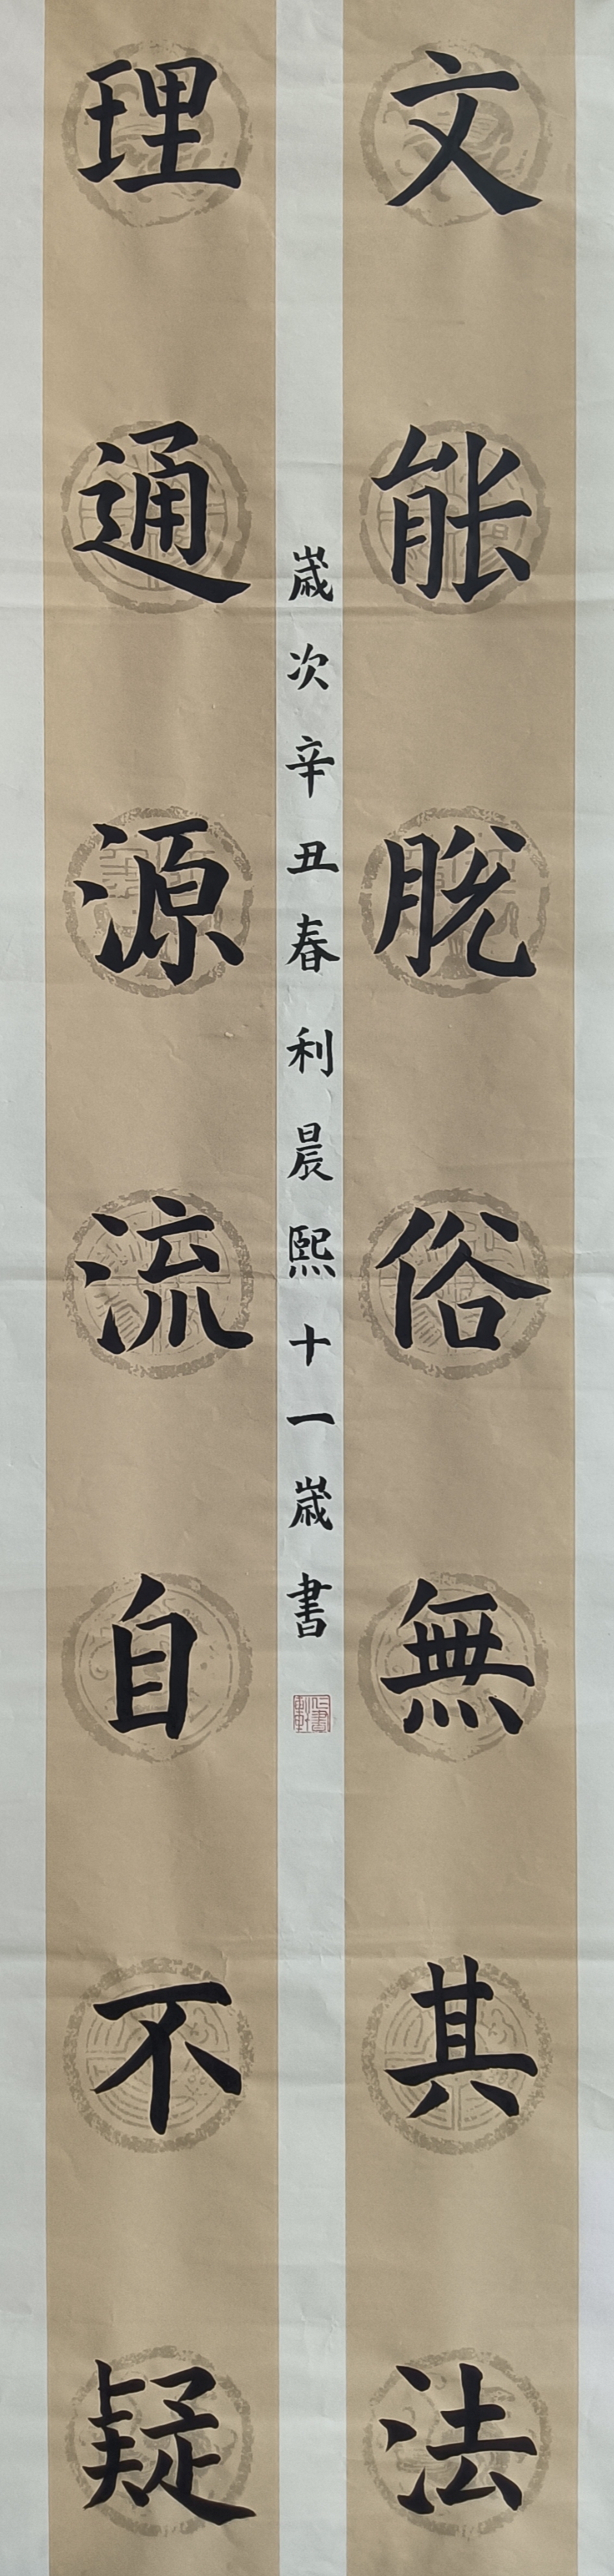 文能脱俗無其法
理通源流自不疑
歲次辛丑春利晨熙十一歲書